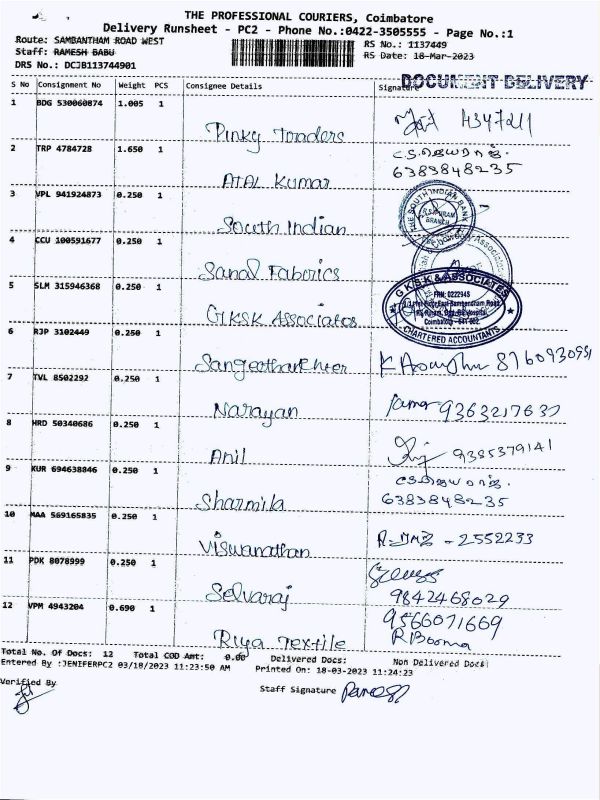 THE PROFESSIONAL COURIERS, Coimbatore
Delivery Runsheet - PC2 - Phone No.:0422-3505555 - Page No.:1
Route: SAMBANTHAM ROAD WEST
RS No.: 1137449
Staff: RAMESH BABU
RS Date: 18-Mar-2023
DRS No.: DCJB113744901
DOCUMENT DELIVERY
S No Consignment No Weight PCS Consignee Details Signature
1 BDG 530060874 1.005 1
Pinky Traders 4347211
2 TRP 4784728 1.650 1
ATAL Kumar 6383848235
3 VPL 941924873 0.250 1
South Indian
THE SOUTH INDIAN BANK
R.S. PURAM
BRANCH
4 CCU 100591677 0.250 1
Sanal Faberics
5 SLM 315946368 0.250 1
GKSK Associates
G K S K & ASSOCIATES
FRN: 022294S
Coimbatore - 641 002
CHARTERED ACCOUNTANTS
6 RJP 3102449 0.250 1
8760930951
7 TVL 8502292 0.250 1
Narayan 9363217637
8 HRD 50340686 0.250 1
Anil 9385379141
9 KUR 694638846 0.250 1
Sharmila 6383848235
10 MAA 569165835 0.250 1
Viswanathan - 2552233
11 PDK 8078999 0.250 1
Selvaraj 9842468029
12 VPM 4943204 0.690 1
9566071669
Riya Textile R Booma
Total No. Of Docs: 12 Total COD Amt: 0.00 Delivered Docs: Non Delivered Docs:
Entered By :JENIFERPC2 03/18/2023 11:23:50 AM Printed On: 18-03-2023 11:24:23
Verified By
Staff Signature